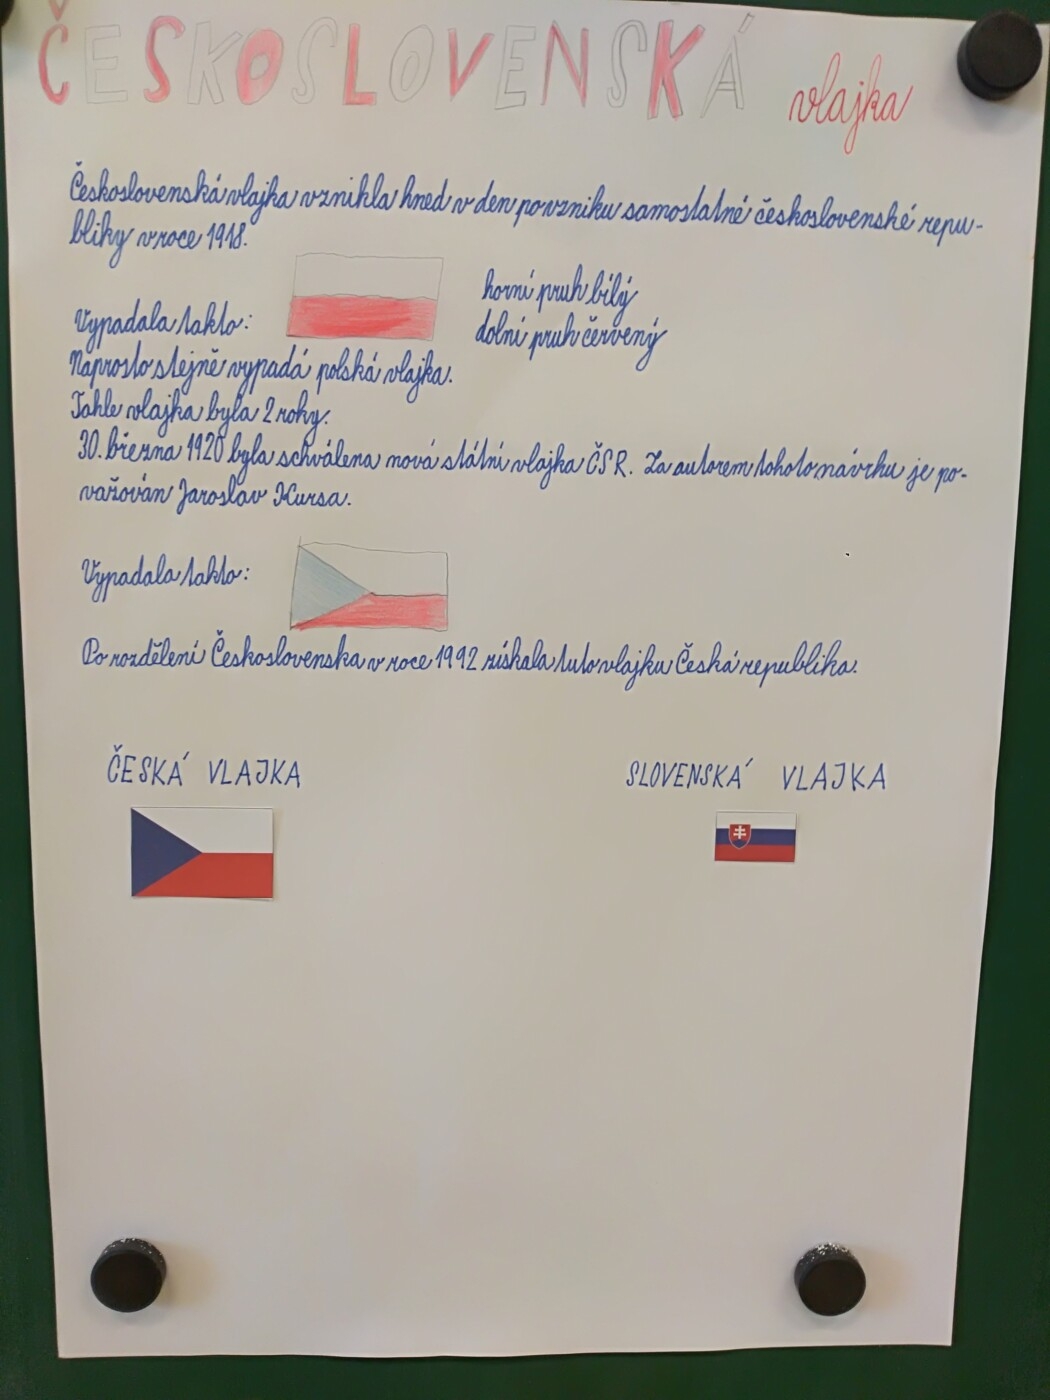 ČESKOSLOVENSKÁ vlajka
Československá vlajka vznikla hned v den po vzniku samostatné československé repu-
bliky v roce 1918.
horní pruh bílý
Vypadala takto:
dolní pruh červený
Naprosto stejně vypadá polská vlajka.
Tahle vlajka byla 2 roky.
30. března 1920 byla schválena nová státní vlajka ČSR. Za autorem tohoto návrhu je po-
važován Jaroslav Kursa.
Vypadala takto:
Po rozdělení Československa v roce 1992 získala tuto vlajku Česká republika.
ČESKÁ VLAJKA
SLOVENSKÁ VLAJKA